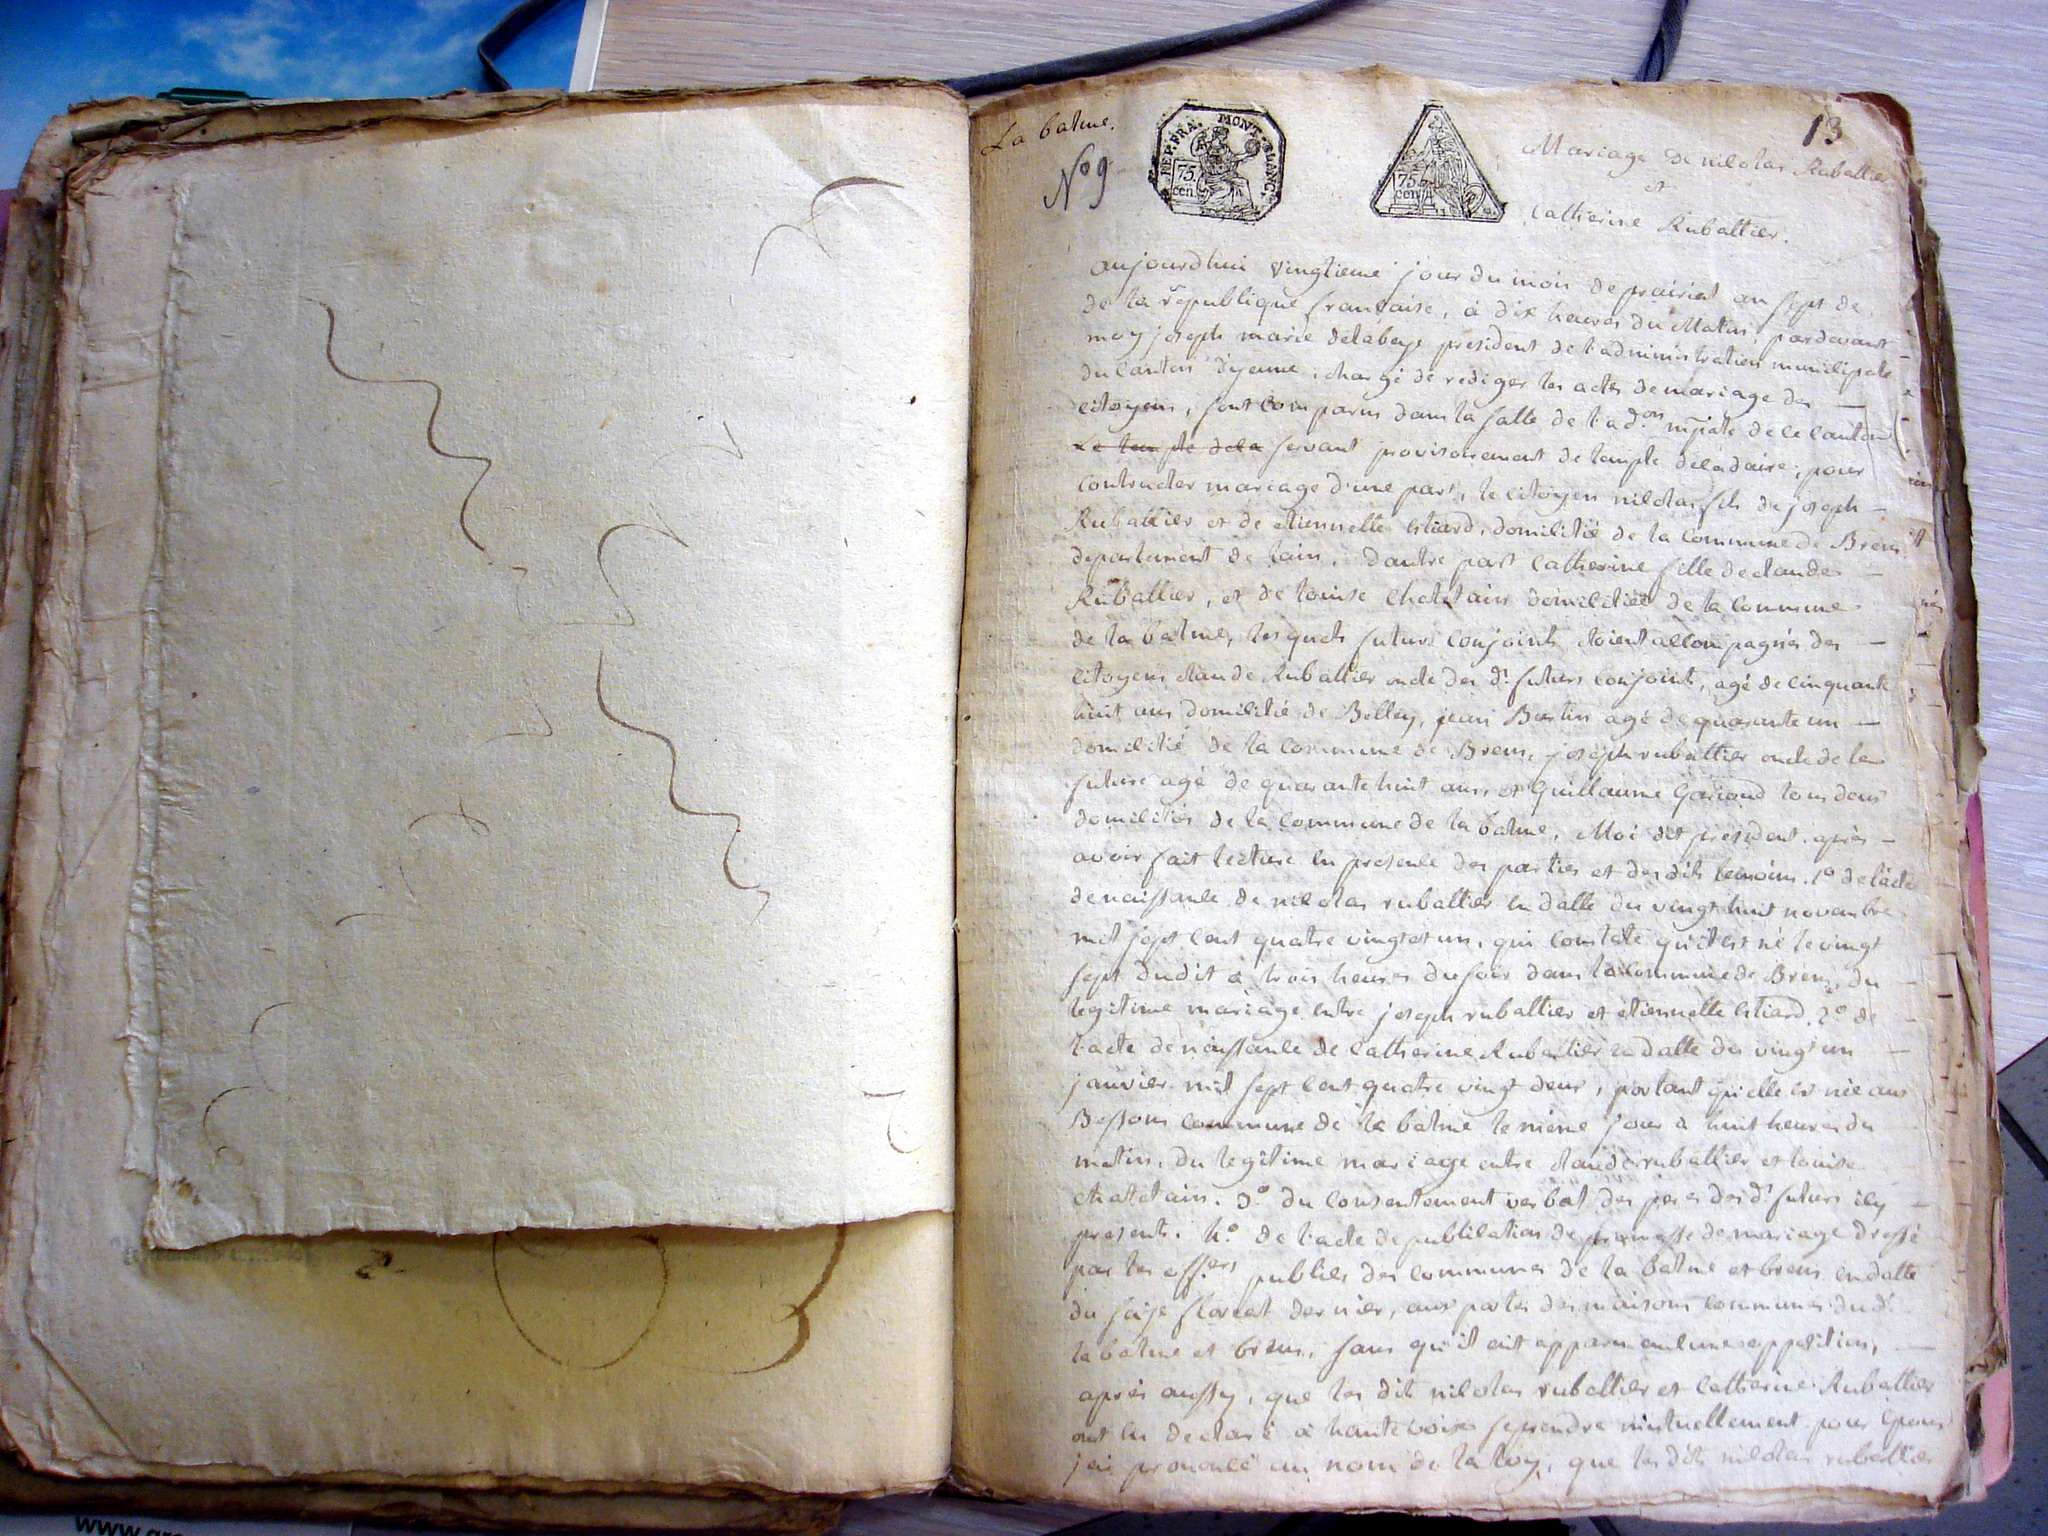 La balme.
13
N° 9
REP. FRA. MONT-BLANC.
75 cen.
75 cen.
Mariage de nicolasRuballier
et
Catherine Ruballier.
aujourdhui vingtieme jour du mois de prairial an sept de
de la republique francaise, à dix heures du Matin, pardevant
moy joseph marie delabeye president de l'administration municipale
du canton d'yenne, chargé de rediger les actes de mariage des
citoyens, sont comparus dans la salle de l'ad.on mpale de ce canton
servant provisoirement de temple decadaire, pour
contracter mariage d'une part, le citoyen nicolas fils de joseph
Ruballier et de etiennette domicilié de la commune de Brens
departement de lain, dautre part Catherine fille de claude
Ruballier, et de louise chatelain domiciliée de la commune
de la balme, lesquels futurs conjoints etoient accompagnés des
citoyens claude Ruballier oncle des d.t futurs conjoints, agé de cinquante
huit ans domicilié de Belley, jean Bertin agé de quarante un
domicilié de la commune de Brens, joseph ruballier oncle de la
future agé de quarante huit ans et Guillaume tous deux
domiciliés de la commune de la balme, Moi dit president après
avoir fait lecture en presence des parties et des dits temoins. 1° de l'acte
de naissance de nicolas ruballier en datte du vingt huit novembre
mil sept cent quatre vingt et un, qui constate qu'il est né le vingt
sept dudit à trois heures du soir dans la commune de Brens, du
legitime mariage entre joseph ruballier et etiennette 2° de
l'acte de naissance de catherine Ruballier en datte du vingt un
janvier mil sept cent quatre vingt deux, portant qu'elle est née aux
Bessons commune de la balme le même jour à huit heures du
matin, du legitime mariage entre claude ruballier et louise
chatelain. 3° du consentement verbal des peres des d.t futurs icy
presents. 4° de l'acte de publication de promesse de mariage dressé
par les off.ers publics des communes de la balme et brens en datte
du seize floreal dernier, aux portes des maisons communes dud.t
la balme et brens, sans qu'il ait apparu aucune opposition,
après aussy, que les dits nicolas ruballier et catherine Ruballier
ont eu declaré à haute voix se prendre mutuellement pour epoux
j'ai prononcé au nom de la loy, que les dits nicolas ruballier